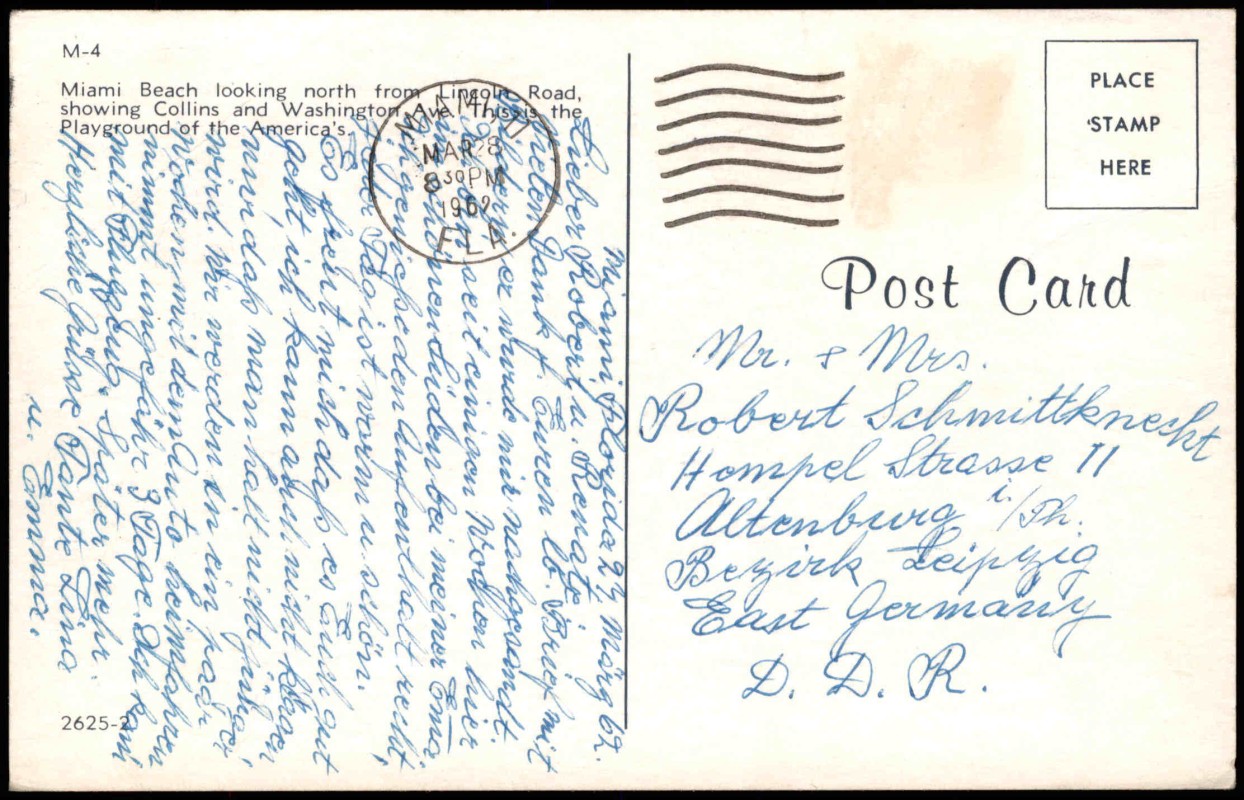 M-4
Miami Beach looking north from Lincoln Road,
showing Collins and Washington Ave. This is the
Playground of the America's.
MIAMI
MAR 28
8 30 PM
1962
FLA.
PLACE
STAMP
HERE
Post Card
Mr. & Mrs.
Robert Schmittknecht
Hempel Strasse 11
Altenburg i./Th.
Bezirk Leipzig
East Germany
D. D. R.
Miami Florida 27 März 62.
Lieber Robert u. Renate!
Vielen Dank f. Euren lb. Brief mit
Bilder, er wurde mir nachgesandt.
seit einigen Wochen hier
im schönen Süden bei meiner Ema
angenehmen Aufenthalt recht
jeder Tag ist warm u. schön.
Es freut mich daß es Euch gut
geht, ich kann auch nicht klagen
nur daß man halt nicht jünger
wird. Wir werden in ein paar
Wochen mit dem Auto heimfahren
nimmt ungefähr 3 Tage. Ich kam
mit Flugzeug. Später mehr
Herzliche Grüsse Tante Lina
u. Emma.
2625-2